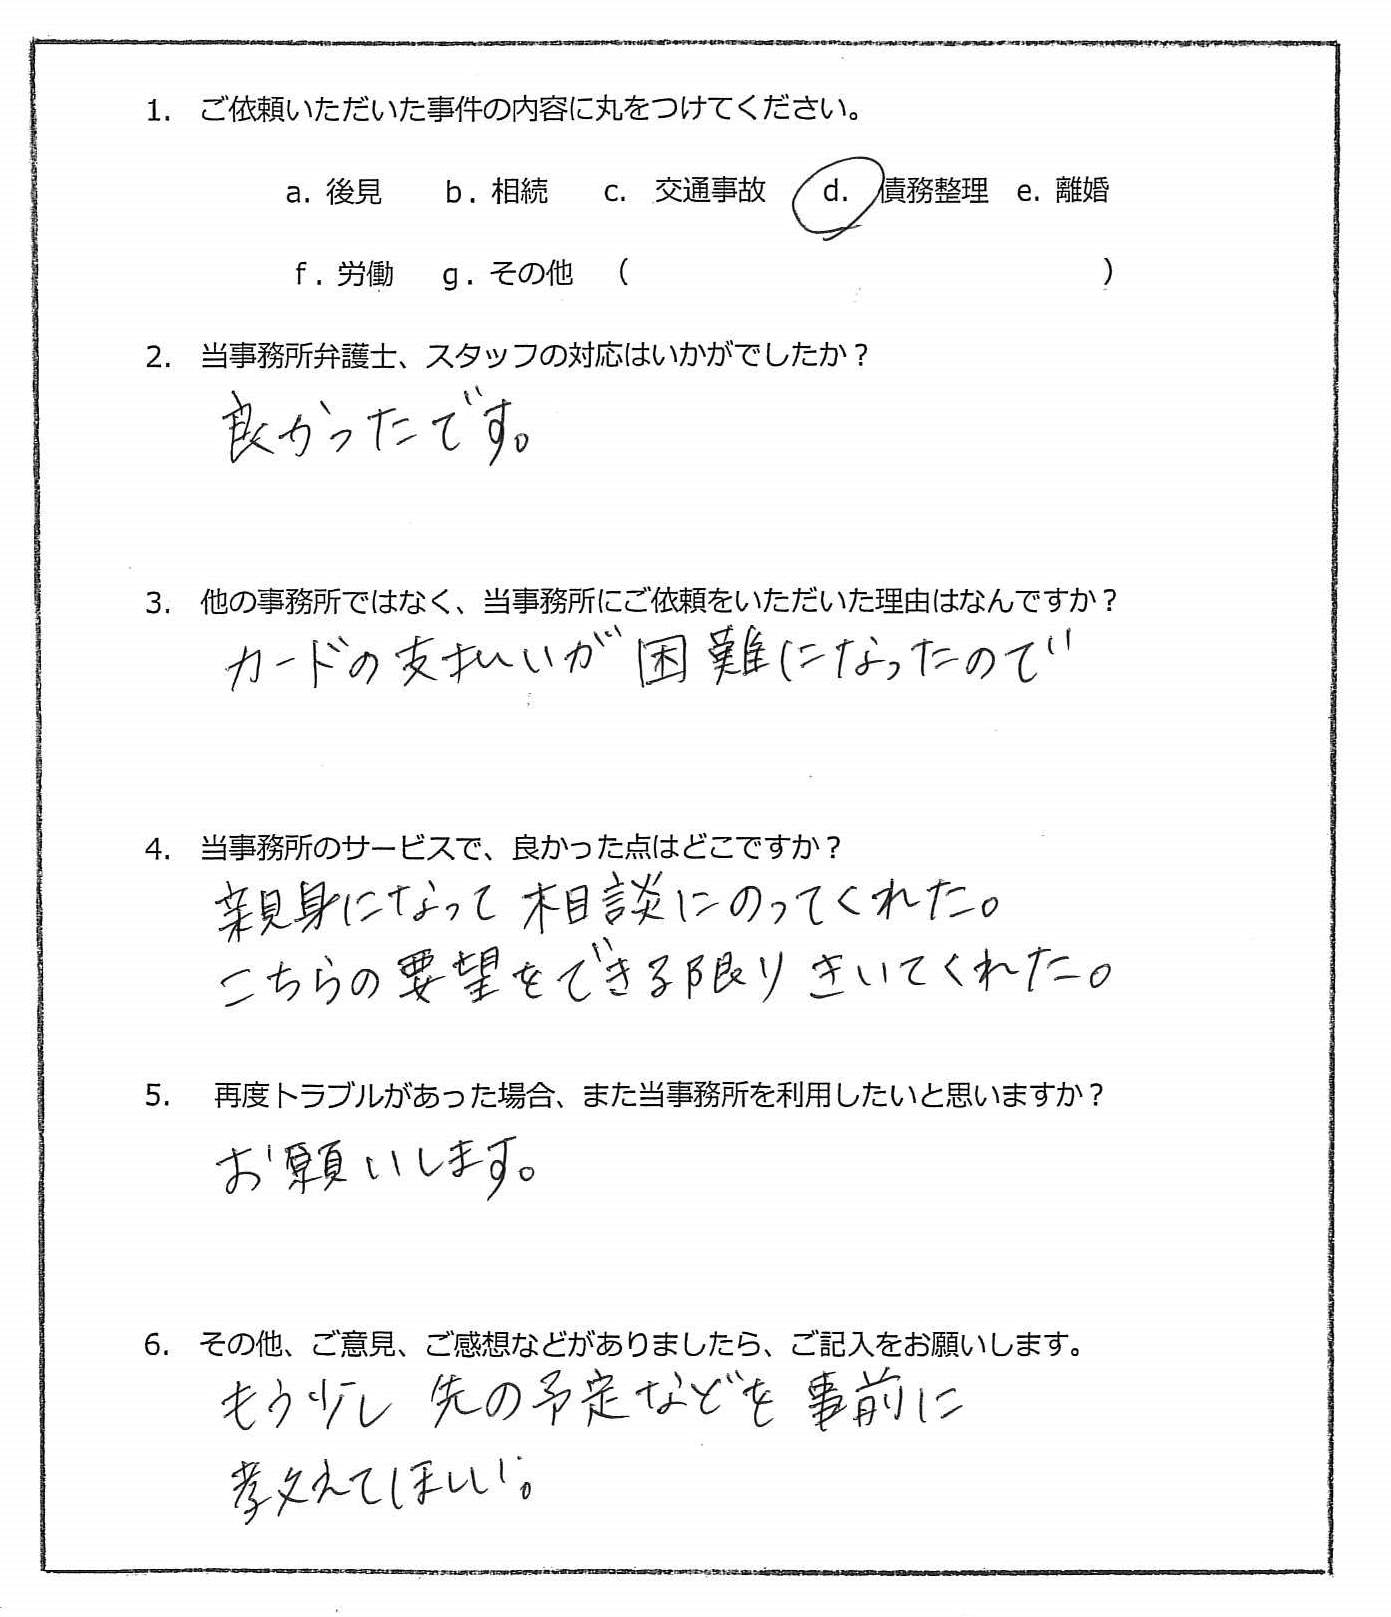 1. ご依頼いただいた事件の内容に丸をつけてください。
a. 後見 b. 相続 c. 交通事故 d. 債務整理 e. 離婚
f. 労働 g. その他 ( )
2. 当事務所弁護士、スタッフの対応はいかがでしたか？
良かったです。
3. 他の事務所ではなく、当事務所にご依頼をいただいた理由はなんですか？
カードの支払いが困難になったので
4. 当事務所のサービスで、良かった点はどこですか？
親身になって相談にのってくれた。
こちらの要望をできる限りきいてくれた。
5. 再度トラブルがあった場合、また当事務所を利用したいと思いますか？
お願いします。
6. その他、ご意見、ご感想などがありましたら、ご記入をお願いします。
もう少し先の予定などを事前に
教えてほしい。